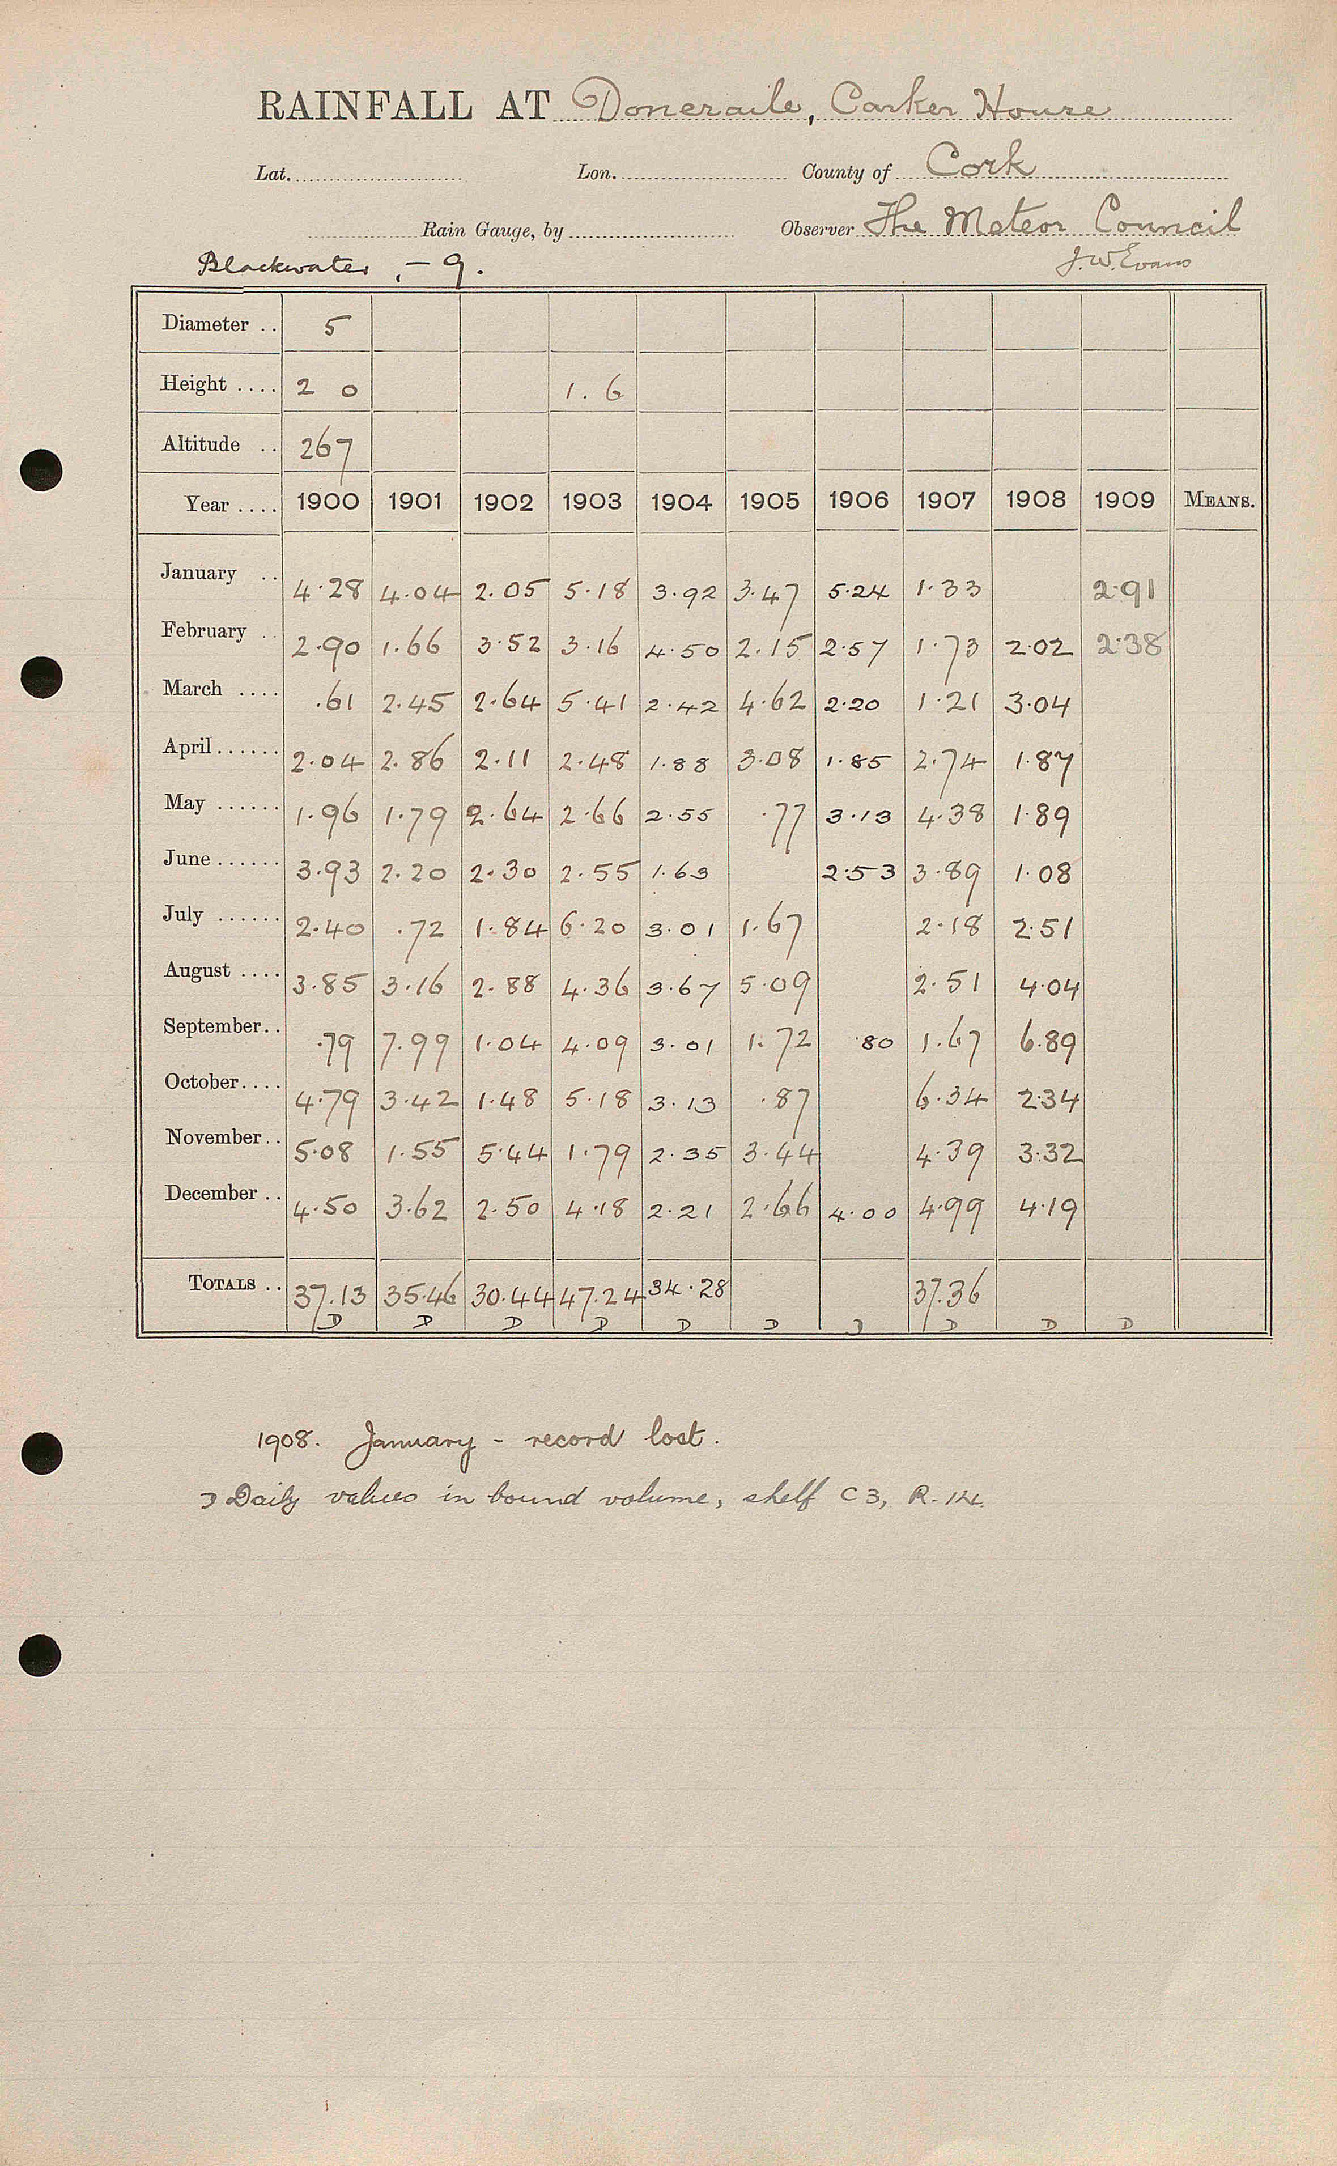 RAINFALL AT Doneraile, Carker House
Lat. Lon. County of Cork
Rain Gauge, by Observer The Meteor Council
Blackwater, - 9. J.W. Evans
Diameter .. 5
Height .... 2 0 1.6
Altitude .. 267
Year .... 1900 1901 1902 1903 1904 1905 1906 1907 1908 1909 MEANS.
January .. 4.28 4.04 2.05 5.18 3.92 3.47 5.24 1.33 2.91
February .. 2.90 1.66 3.52 3.16 4.50 2.15 2.57 1.73 2.02 2.38
March .... .61 2.45 2.64 5.41 2.42 4.62 2.20 1.21 3.04
April ...... 2.04 2.86 2.11 2.48 1.88 3.08 1.85 2.74 1.87
May ...... 1.96 1.79 2.64 2.66 2.55 .77 3.13 4.38 1.89
June ...... 3.93 2.20 2.30 2.55 1.63 2.53 3.89 1.08
July ...... 2.40 .72 1.84 6.20 3.01 1.67 2.18 2.51
August .... 3.85 3.16 2.88 4.36 3.67 5.09 2.51 4.04
September.. .79 7.99 1.04 4.09 3.01 1.72 .80 1.67 6.89
October.... 4.79 3.42 1.48 5.18 3.13 .87 6.34 2.34
November.. 5.08 1.55 5.44 1.79 2.35 3.44 4.39 3.32
December .. 4.50 3.62 2.50 4.18 2.21 2.66 4.00 4.99 4.19
TOTALS .. 37.13 35.46 30.44 47.24 34.28 37.36
D D D D D D D D D D
1908. January - record lost.
D Daily values in bound volume, shelf C3, R. 14.